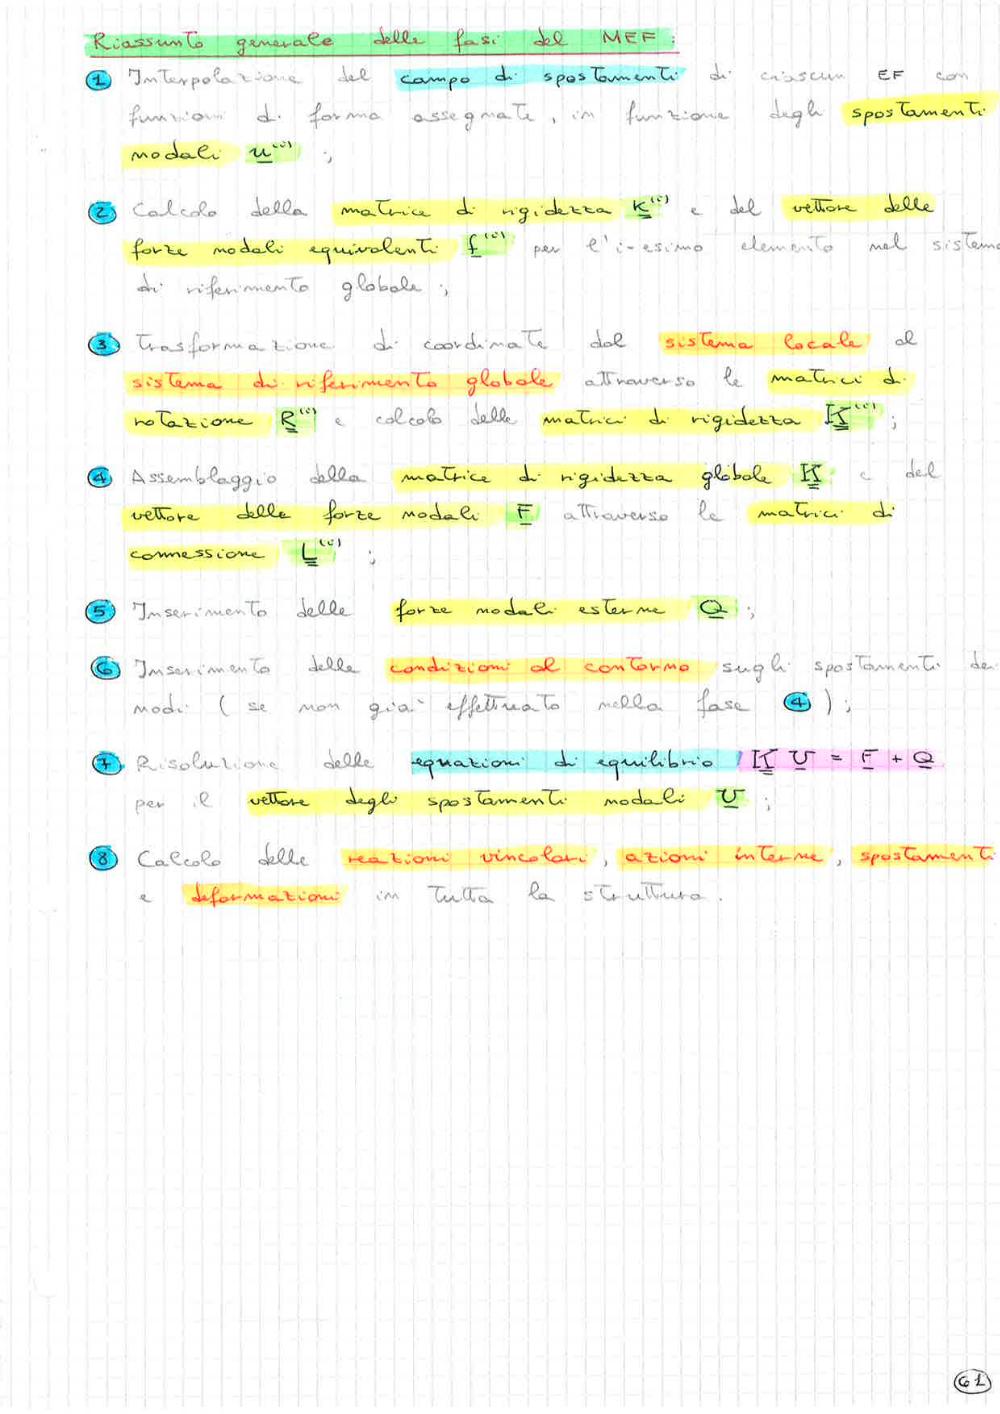 Riassunto generale delle fasi del MEF:
1 Interpolazione del campo di spostamenti di ciascun EF con
funzioni di forma assegnate, in funzione degli spostamenti
nodali u⁽ⁱ⁾ ;
2 Calcolo della matrice di rigidezza k⁽ⁱ⁾ e del vettore delle
forze nodali equivalenti f⁽ⁱ⁾ per l'i-esimo elemento nel sistema
di riferimento globale ;
3 Trasformazione di coordinate dal sistema locale al
sistema di riferimento globale attraverso le matrici di
rotazione R⁽ⁱ⁾ e calcolo delle matrici di rigidezza K⁽ⁱ⁾ ;
4 Assemblaggio della matrice di rigidezza globale K e del
vettore delle forze nodali F attraverso le matrici di
connessione L⁽ⁱ⁾ ;
5 Inserimento delle forze nodali esterne Q ;
6 Inserimento delle condizioni al contorno sugli spostamenti dei
nodi ( se non già effettuato nella fase 4 ) ;
7 Risoluzione delle equazioni di equilibrio K U = F + Q
per il vettore degli spostamenti nodali U ;
8 Calcolo delle reazioni vincolari, azioni interne, spostamenti
e deformazioni in tutta la struttura.
61